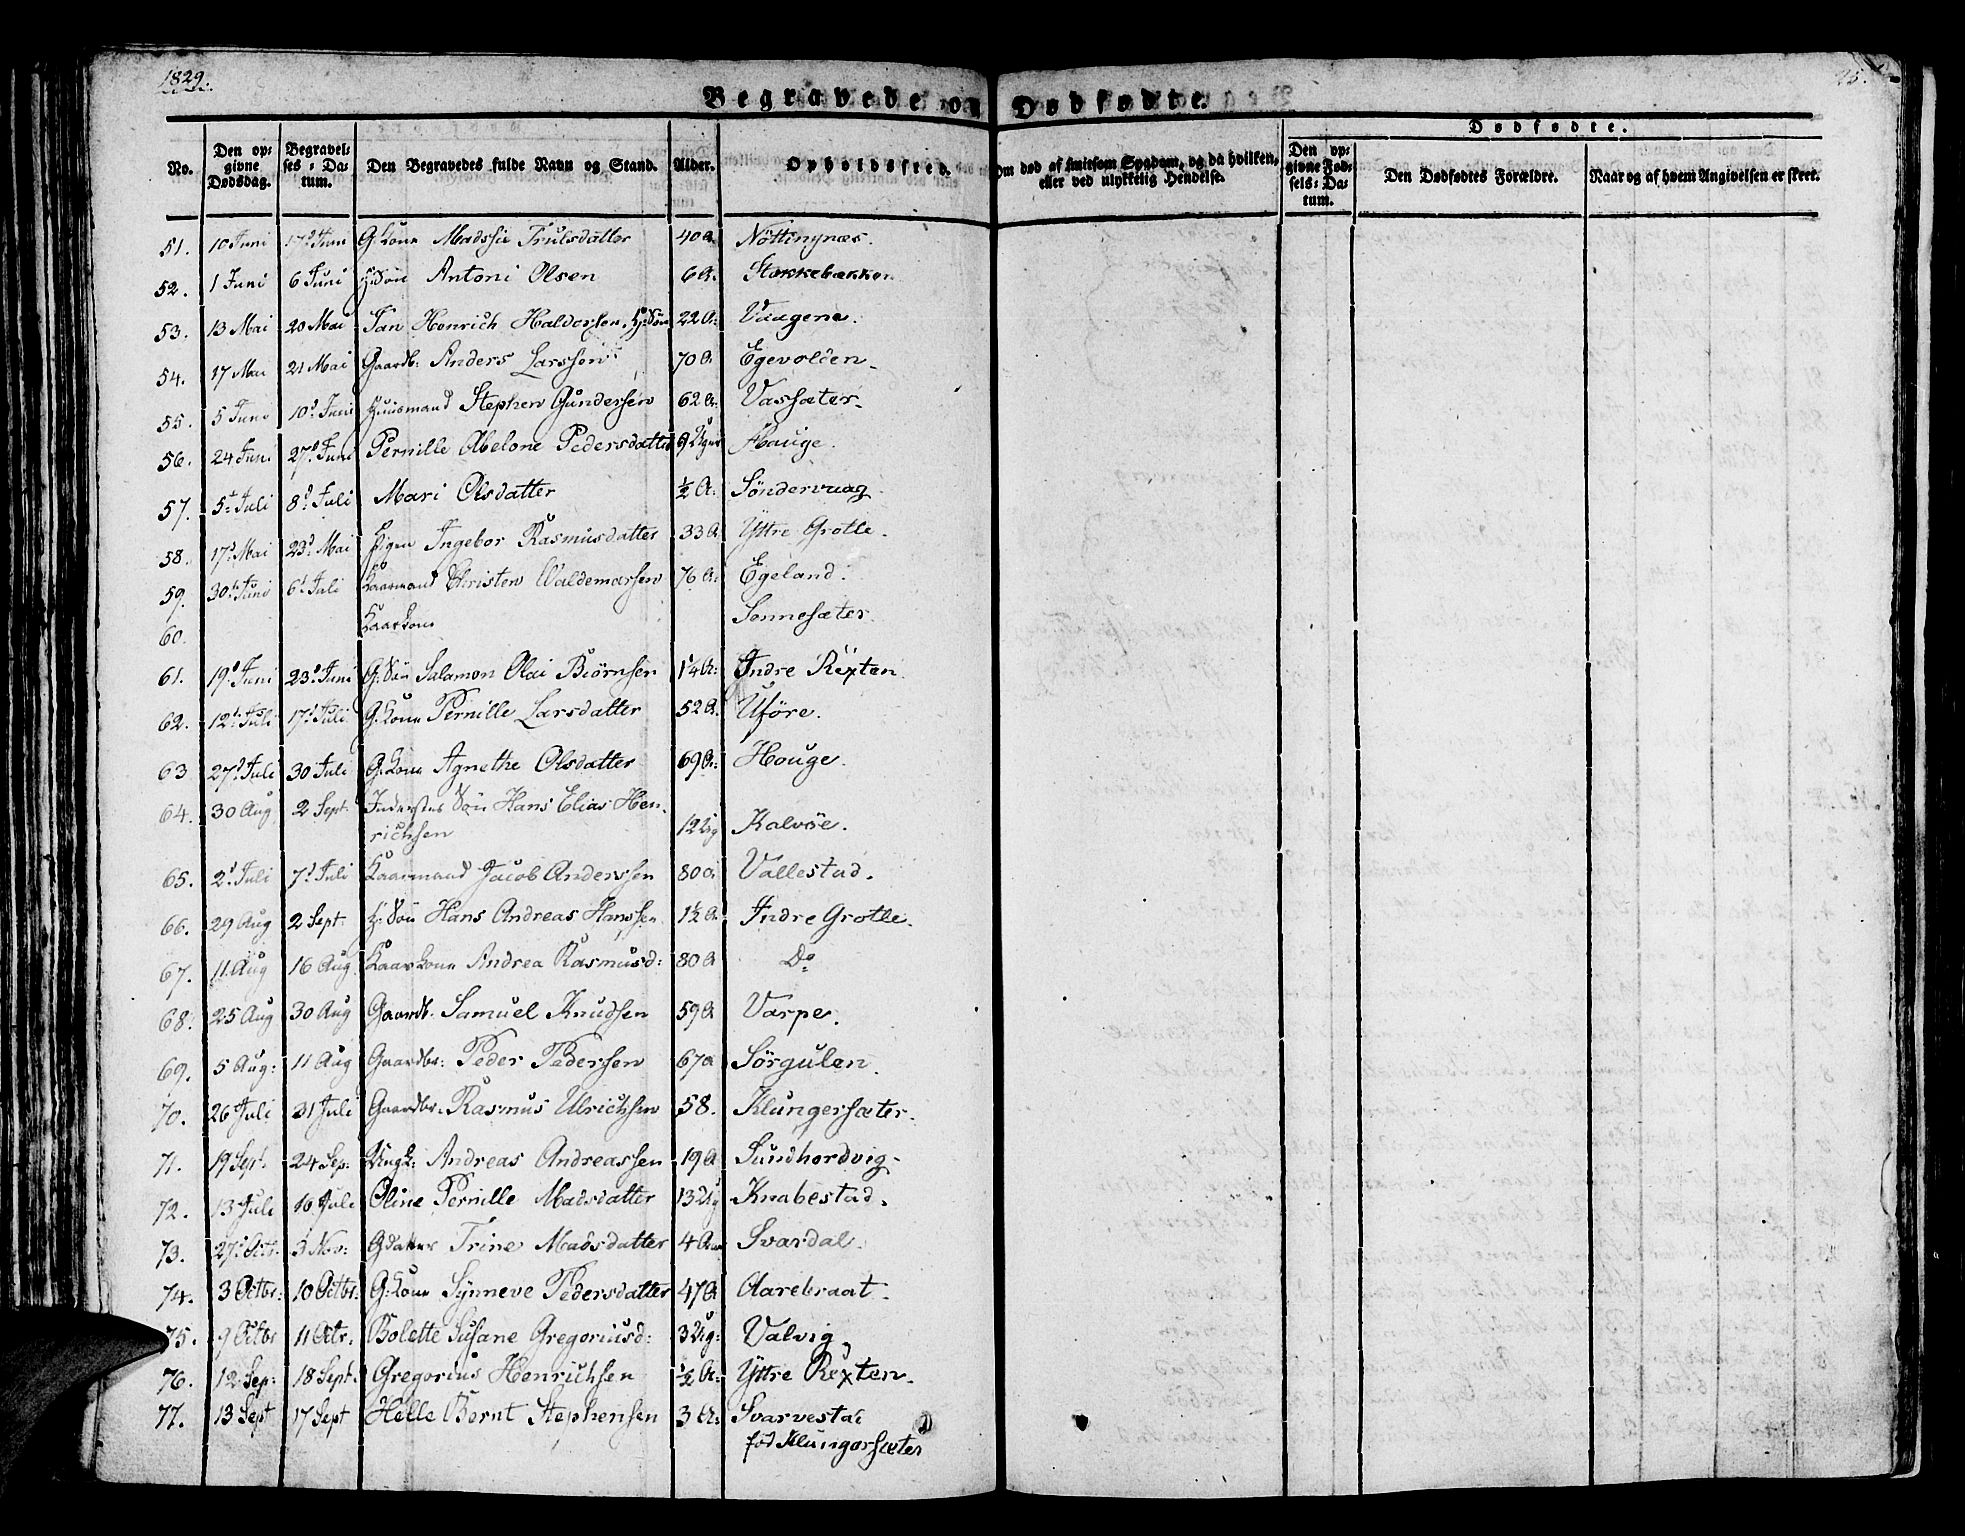 1829.
25.
Begravede og Dødfødte.
No. | Den opgivne Dødsdag. | Begravelses-Datum. | Den Begravedes fulde Navn og Stand. | Alder. | Opholdssted. | Om død af smitsom Sygdom, og da hvilken, eller ved ulykkelig Hendelse. | Dødfødte. | Den opgivne Fødsels-Datum. | Den Dødfødtes Forældre. | Naar og af hvem Angivelsen er skeet.
51. 10 Juni 17d Juni G:Kone Madssie Trulsdatter 40 A. Nöttingnæs.
52. 1 Juni 6 Juni H:Sön Antoni Olsen 6 A. Stokkebækken
53. 13 Mai 20 Mai Jan Henrich Haldorsen, H:Sön 22 A: Vaagene.
54. 17 Mai 21 Mai Gaardb: Anders Larssen 70 A Egevolden
55. 5 Juni 10d Juni Huusmand Stephen Gundersen 62 A. Vassæter
56. 24 Juni 27d Juni Pernille Abelone Pedersdatter 9 Uger Houge.
57. 5t Juli 8d Juli Mari Olsdatter ½ A: Söndervaag
58. 17d Mai 23d Mai Pigen Ingebor Rasmusdatter 33 A Yttre Grotle.
59. 30te Juni 6t Juli Kaarmand Christen Waldemarsen 76 A. Egeland.
60. Kaarkone Sonnesæter.
61. 19d Juni 23d Juni G:Sön Salamon Olai Biörnsen 14 A: Indre Rixten
62. 12t Juli 17t Juli G:Kone Pernille Larsdatter 52 A. Uföre.
63 27d Juli 30 Juli G:Kone Agnethe Olsdatter 69 A: Houge.
64. 30 Aug 2 Sept. Inderstes Sön Hans Elias Hen-
richsen 12 Ug Kalvöe.
65. 2d Juli 7d Juli Kaarmand Jacob Anderssen 80 A Vallestad.
66. 29 Aug 2 Sept. H:Sön Hans Andreas Hanssen 1½ A Indre Grotle.
67. 11 Aug 16 Aug Kaarkone Andrea Rasmusd: 80 A Do
68. 25 Aug 30 Aug Gaardb. Samuel Knudsen 59 A Varpe.
69. 5 Aug: 11 Aug Gaardbr: Peder Pederssen 67 a Sörgulen.
70. 26 Juli 31 Juli Gaardbr: Rasmus Ulrichsen 58. Klungersæter.
71. 19 Sept. 24 Sep: Ungk: Andreas Andreassen 19 A Sundhordvig
72. 13 Juli 16 Juli Oline Pernille Madsdatter 13 Ug Knabestad.
73. 27d Octr. 3 Nov: G datter Trine Madsdatter 4 Aar Svardal.
74. 3 Octbr: 10 Octbr: G:Kone Synneve Pedersdatter 47 A Aarebraat.
75. 9 Octbr 11 Octr. Bolette Susane Gregoriusd: 3 Ug: Valvig
76. 12 Sep: 18 Sept. Gregorius Henrichsen ½ A: Yttre Rixten.
77. 13 Sept 17 Sept Helle Bernt Stephensen 3 A: Svarvestad
fød Klungersæter